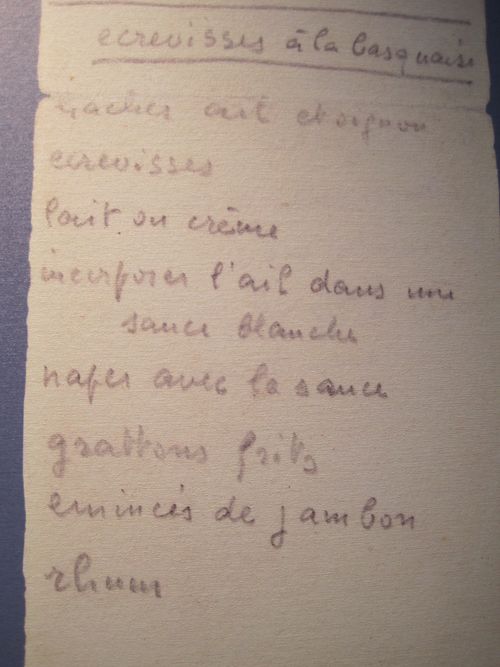 ecrevisses à la basquaise
hacher ail et oignon
ecrevisses
lait ou crème
incorporer l'ail dans une
sauce blanche
naper avec la sauce
grattons frits
emincés de jambon
rhum